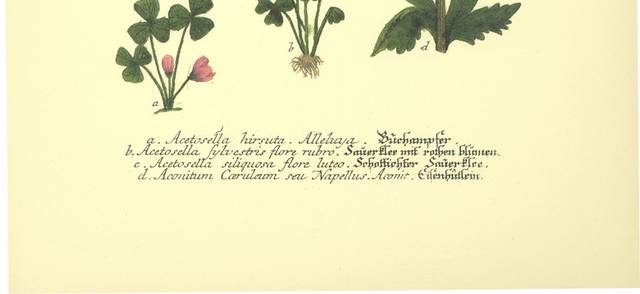 a
b
d
a. Acetosella hirsuta. Alleluja. Buchampfer.
b. Acetosella sylvestris flore rubro. Sauerklee mit rothen blumen.
c. Acetosella siliquosa flore luteo. Schottichter Sauerklee.
d. Aconitum Cæruleum seu Napellus. Aconit. Eisenhütlein.